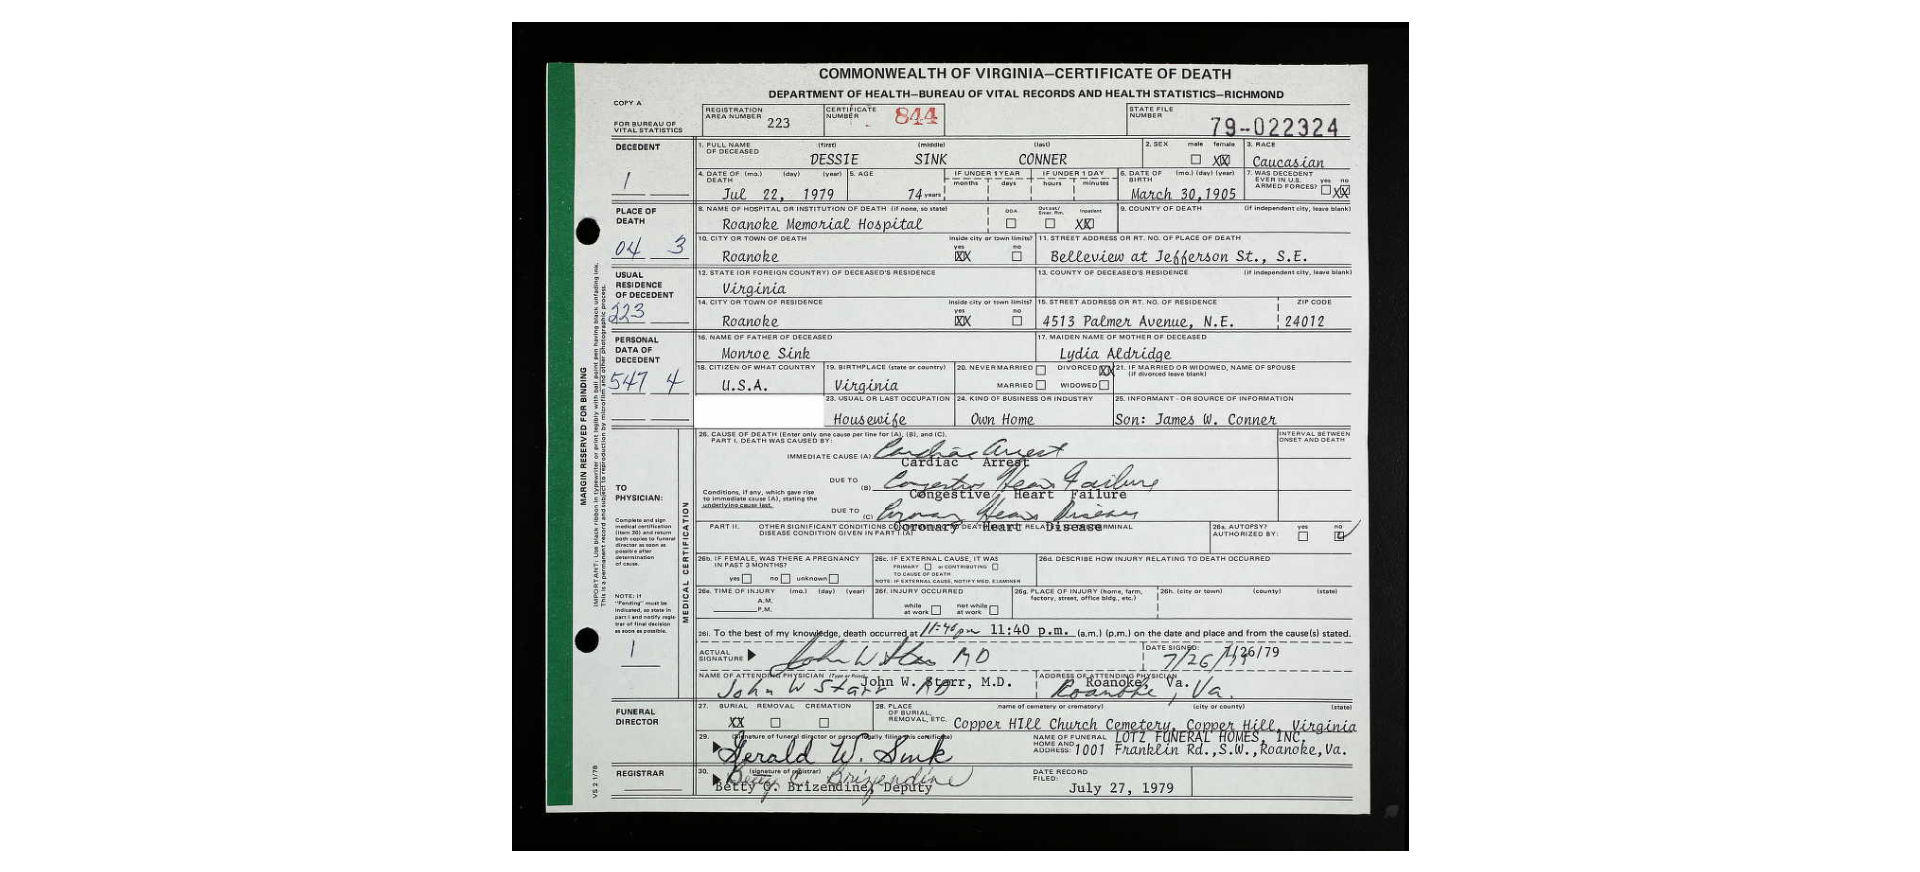 COMMONWEALTH OF VIRGINIA—CERTIFICATE OF DEATH
DEPARTMENT OF HEALTH—BUREAU OF VITAL RECORDS AND HEALTH STATISTICS—RICHMOND
COPY A
FOR BUREAU OF VITAL STATISTICS
REGISTRATION AREA NUMBER 223
CERTIFICATE NUMBER 844
STATE FILE NUMBER 79-022324
DECEDENT
1
1. FULL NAME OF DECEASED (first) (middle) (last)
DESSIE SINK CONNER
2. SEX male female XX
3. RACE
Caucasian
4. DATE OF DEATH (mo.) (day) (year)
Jul 22, 1979
5. AGE
74 years
IF UNDER 1 YEAR months days
IF UNDER 1 DAY hours minutes
6. DATE OF BIRTH (mo.) (day) (year)
March 30,1905
7. WAS DECEDENT EVER IN U.S. ARMED FORCES? yes no XX
PLACE OF DEATH
04 3
8. NAME OF HOSPITAL OR INSTITUTION OF DEATH (if none, so state)
Roanoke Memorial Hospital
DOA Inpatient XX
9. COUNTY OF DEATH (if independent city, leave blank)
10. CITY OR TOWN OF DEATH
Roanoke
inside city or town limits? yes XX no
11. STREET ADDRESS OR RT. NO. OF PLACE OF DEATH
Belleview at Jefferson St., S.E.
USUAL RESIDENCE OF DECEDENT
223
12. STATE (OR FOREIGN COUNTRY) OF DECEASED'S RESIDENCE
Virginia
13. COUNTY OF DECEASED'S RESIDENCE (if independent city, leave blank)
14. CITY OR TOWN OF RESIDENCE
Roanoke
inside city or town limits? yes XX no
15. STREET ADDRESS OR RT. NO. OF RESIDENCE
4513 Palmer Avenue, N.E.
ZIP CODE
24012
PERSONAL DATA OF DECEDENT
547 4
16. NAME OF FATHER OF DECEASED
Monroe Sink
17. MAIDEN NAME OF MOTHER OF DECEASED
Lydia Aldridge
18. CITIZEN OF WHAT COUNTRY
U.S.A.
19. BIRTHPLACE (state or country)
Virginia
20. NEVER MARRIED DIVORCED XX
MARRIED WIDOWED
21. IF MARRIED OR WIDOWED, NAME OF SPOUSE (if divorced leave blank)
23. USUAL OR LAST OCCUPATION
Housewife
24. KIND OF BUSINESS OR INDUSTRY
Own Home
25. INFORMANT - OR SOURCE OF INFORMATION
Son: James W. Conner
MARGIN RESERVED FOR BINDING
IMPORTANT: Use black ribbon in typewriter or print legibly with ball point pen having black unfading ink.
This is a permanent record and subject to reproduction by microfilm and other photographic process.
TO PHYSICIAN:
Complete and sign medical certification (item 26) and return both copies to funeral director as soon as possible after determination of cause.
NOTE: If "Pending" must be indicated, so state in part I and notify registrar of final decision as soon as possible.
1
MEDICAL CERTIFICATION
26. CAUSE OF DEATH (Enter only one cause per line for (A), (B), and (C).
PART I. DEATH WAS CAUSED BY:
INTERVAL BETWEEN ONSET AND DEATH
IMMEDIATE CAUSE (A) Cardiac Arrest
Cardiac Arrest
DUE TO (B) Congestive Heart Failure
Congestive Heart Failure
Conditions, if any, which gave rise to immediate cause (A), stating the underlying cause last.
DUE TO (C) Coronary Heart Disease
Coronary Heart Disease
PART II. OTHER SIGNIFICANT CONDITIONS TERMINAL DISEASE CONDITION GIVEN IN PART I (A)
26a. AUTOPSY? AUTHORIZED BY: yes no
26b. IF FEMALE, WAS THERE A PREGNANCY IN PAST 3 MONTHS?
yes no unknown
26c. IF EXTERNAL CAUSE, IT WAS
PRIMARY or CONTRIBUTING
TO CAUSE OF DEATH
NOTE: IF EXTERNAL CAUSE, NOTIFY MED. EXAMINER
26d. DESCRIBE HOW INJURY RELATING TO DEATH OCCURRED
26e. TIME OF INJURY (mo.) (day) (year)
A.M.
P.M.
26f. INJURY OCCURRED
while at work not while at work
26g. PLACE OF INJURY (home, farm, factory, street, office bldg., etc.)
26h. (city or town) (county) (state)
26i. To the best of my knowledge, death occurred at 11:40 pm 11:40 p.m. (a.m.) (p.m.) on the date and place and from the cause(s) stated.
ACTUAL SIGNATURE John W Starr MD
DATE SIGNED: 7/26/79 7/26/79
NAME OF ATTENDING PHYSICIAN (Type or Print)
John W Starr MD John W. Starr, M.D.
ADDRESS OF ATTENDING PHYSICIAN
Roanoke, Va. Roanoke, Va.
FUNERAL DIRECTOR
27. BURIAL REMOVAL CREMATION
XX
28. PLACE OF BURIAL, REMOVAL, ETC. name of cemetery or crematory) (city or county) (state)
Copper HIll Church Cemetery, Copper Hill, Virginia
29. (signature of funeral director or person legally filing this certificate)
Gerald W. Sink
NAME OF FUNERAL HOME AND ADDRESS: LOTZ FUNERAL HOMES, INC.
1001 Franklin Rd.,S.W.,Roanoke,Va.
REGISTRAR
30. (signature of registrar)
Betty C. Brizendine
Betty C. Brizendine, Deputy
DATE RECORD FILED:
July 27, 1979
VS 2 1/78